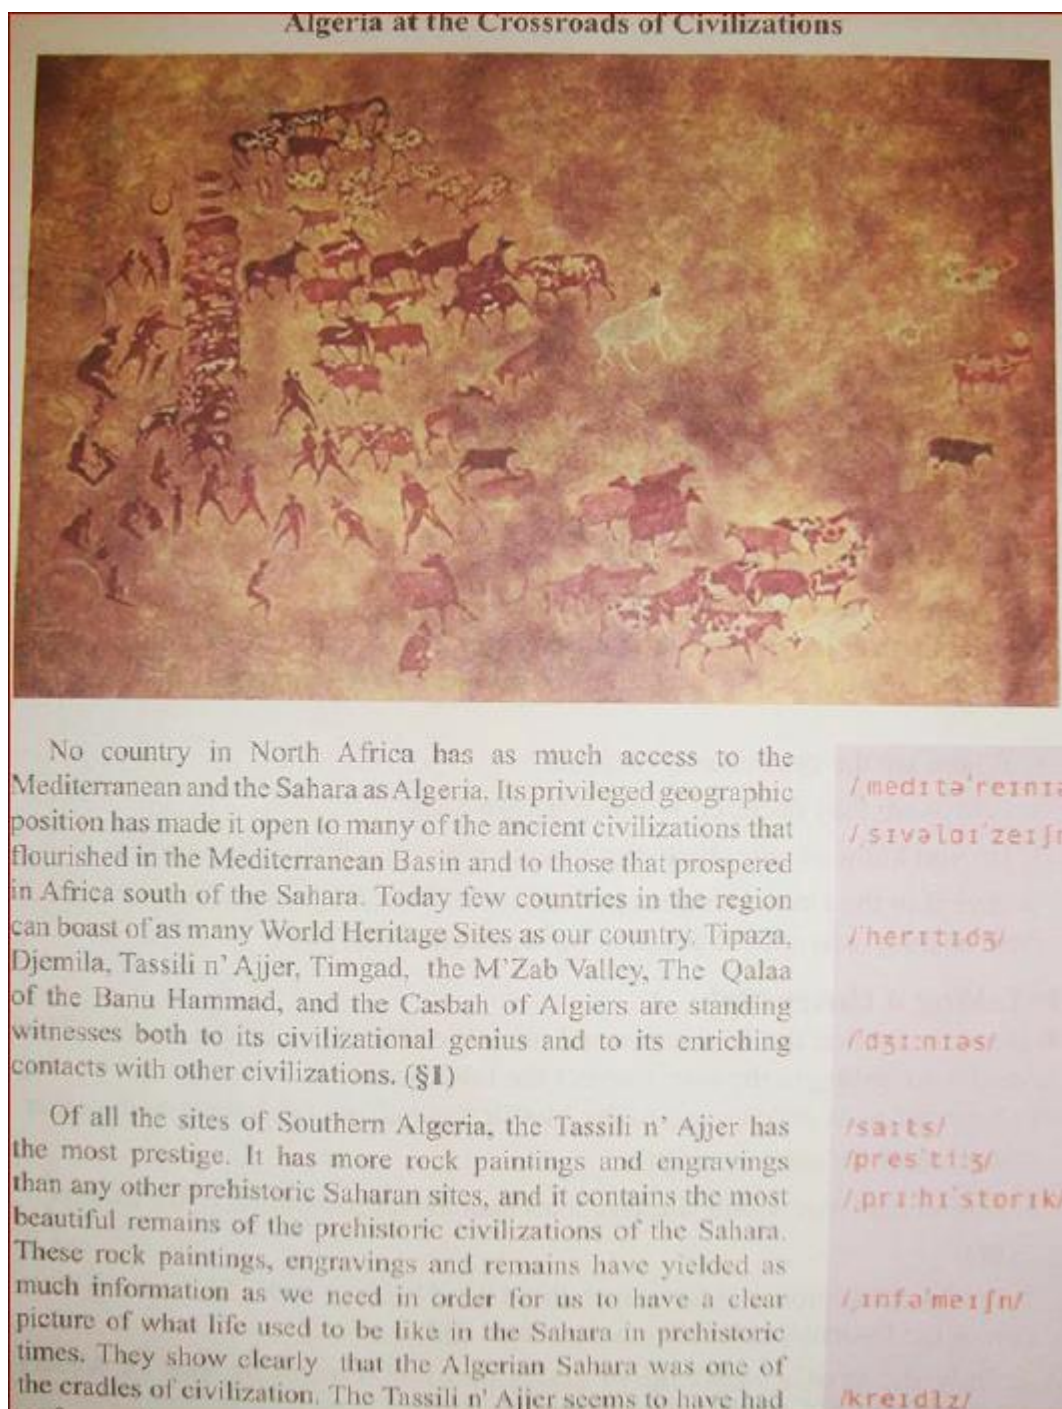 Algeria at the Crossroads of Civilizations
No country in North Africa has as much access to the
Mediterranean and the Sahara as Algeria. Its privileged geographic
position has made it open to many of the ancient civilizations that
flourished in the Mediterranean Basin and to those that prospered
in Africa south of the Sahara. Today few countries in the region
can boast of as many World Heritage Sites as our country. Tipaza,
Djemila, Tassili n' Ajjer, Timgad, the M'Zab Valley, The Qalaa
of the Banu Hammad, and the Casbah of Algiers are standing
witnesses both to its civilizational genius and to its enriching
contacts with other civilizations. (§1)
Of all the sites of Southern Algeria, the Tassili n' Ajjer has
the most prestige. It has more rock paintings and engravings
than any other prehistoric Saharan sites, and it contains the most
beautiful remains of the prehistoric civilizations of the Sahara.
These rock paintings, engravings and remains have yielded as
much information as we need in order for us to have a clear
picture of what life used to be like in the Sahara in prehistoric
times. They show clearly that the Algerian Sahara was one of
the cradles of civilization. The Tassili n' Ajjer seems to have had
/ˌmedɪtəˈreɪnɪə
/ˌsɪvəlaɪˈzeɪʃn
/ˈherɪtɪdʒ/
/ˈdʒɪːnɪəs/
/saɪts/
/presˈtiːʒ/
/ˌprɪːhɪˈstorɪk/
/ˌɪnfəˈmeɪʃn/
/kreɪdlz/